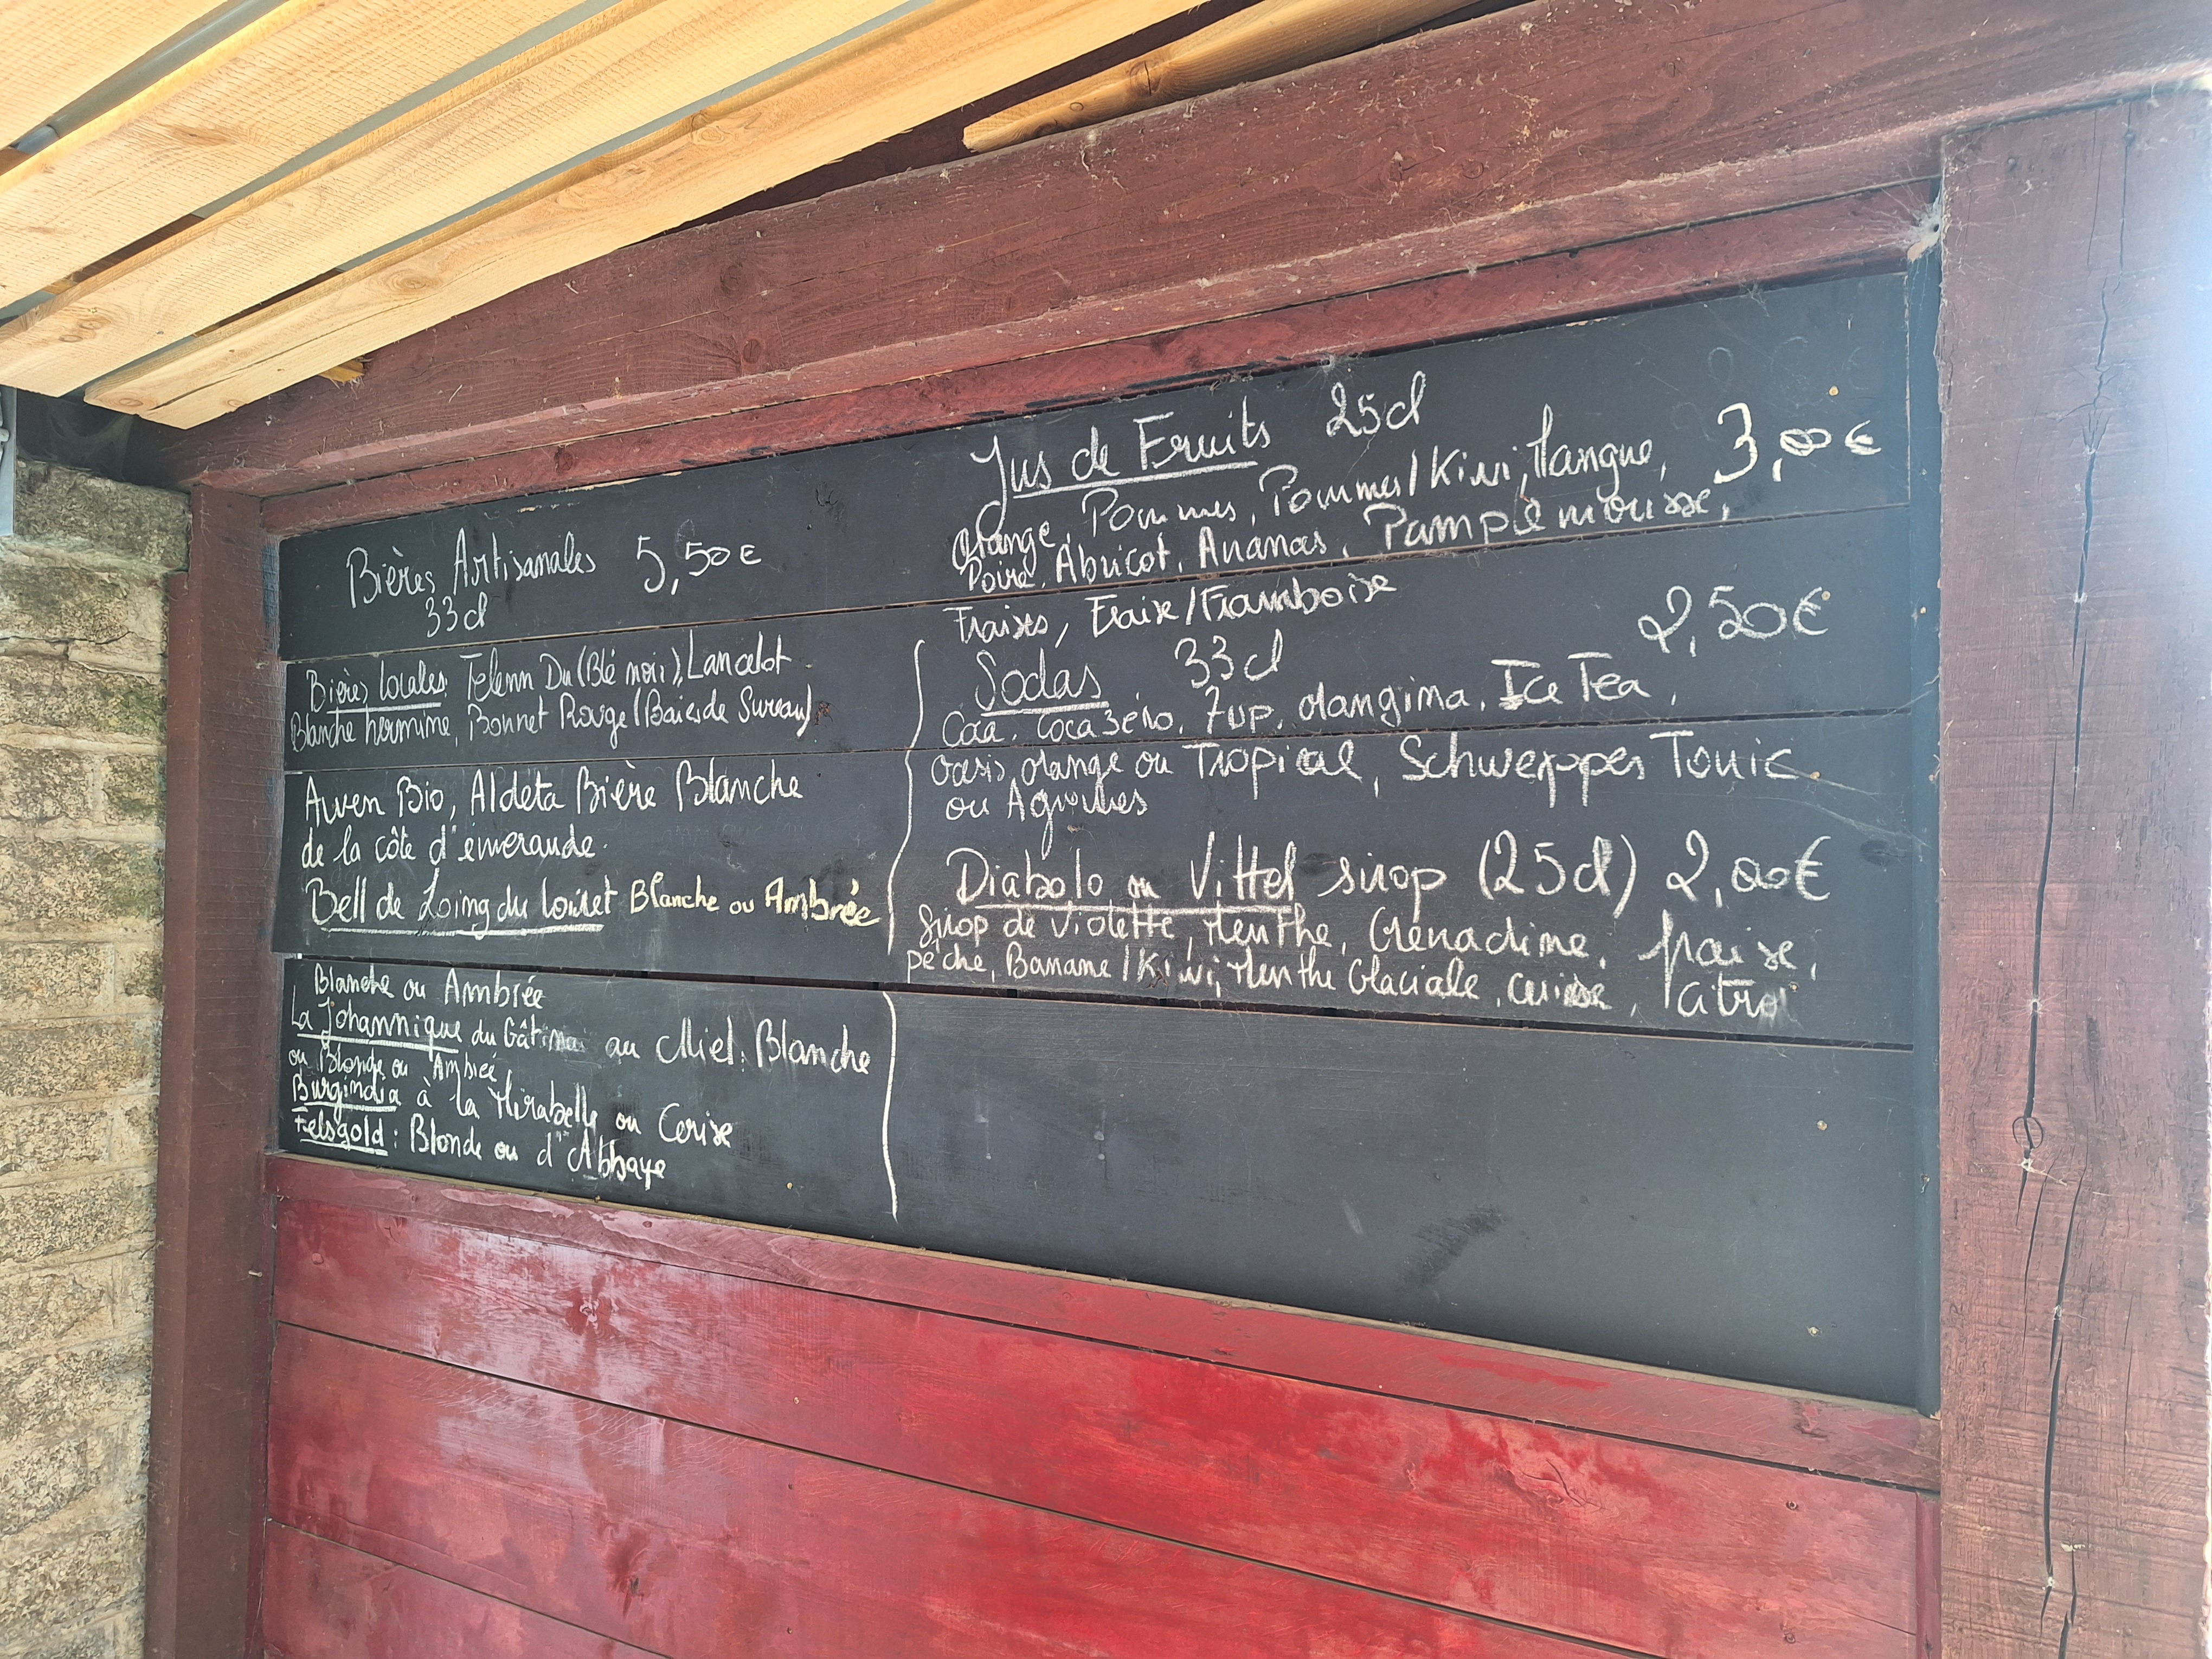 Bières Artisanales 5,50€
33cl
Bières locales Telenn Du (Blé noir), Lancelot
Blanche hermine, Bonnet Rouge (Baies de Sureau)
Awen Bio, Aldéta Bière Blanche
de la côte d'émeraude.
Bell de Loing du loiret Blanche ou Ambrée
Blanche ou Ambrée
La Johannique du Gâtinais au Miel: Blanche
ou Blonde ou Ambrée
Burgindia à la Mirabelle ou Cerise
Felsgold: Blonde ou d'Abbaye
Jus de Fruits 25cl
Orange, Pommes, Pommes/Kiwi, Mangue, 3,00€
Poire, Abricot, Ananas, Pamplemousse,
Fraises, Fraise/Framboise
Sodas 33cl 2,50€
Coca, Coca zéro, 7up, orangina, Ice Tea,
Oasis orange ou Tropical, Schweppes Tonic
ou Agrumes
Diabolo ou Vittel sirop (25cl) 2,00€
Sirop de Violette, Menthe, Grenadine, fraise,
pêche, Banane/Kiwi, Menthe Glaciale, cerise, citron